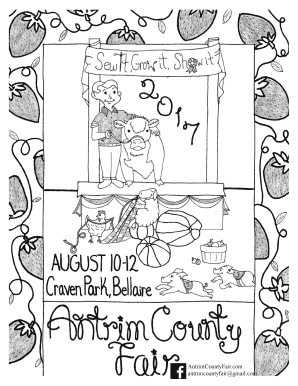 Sew it, Grow it, Show it
2017
AUGUST 10-12
Craven Park, Bellaire
Antrim County
Fair
AntrimCountyFair.com
antrimcountyfair@gmail.com